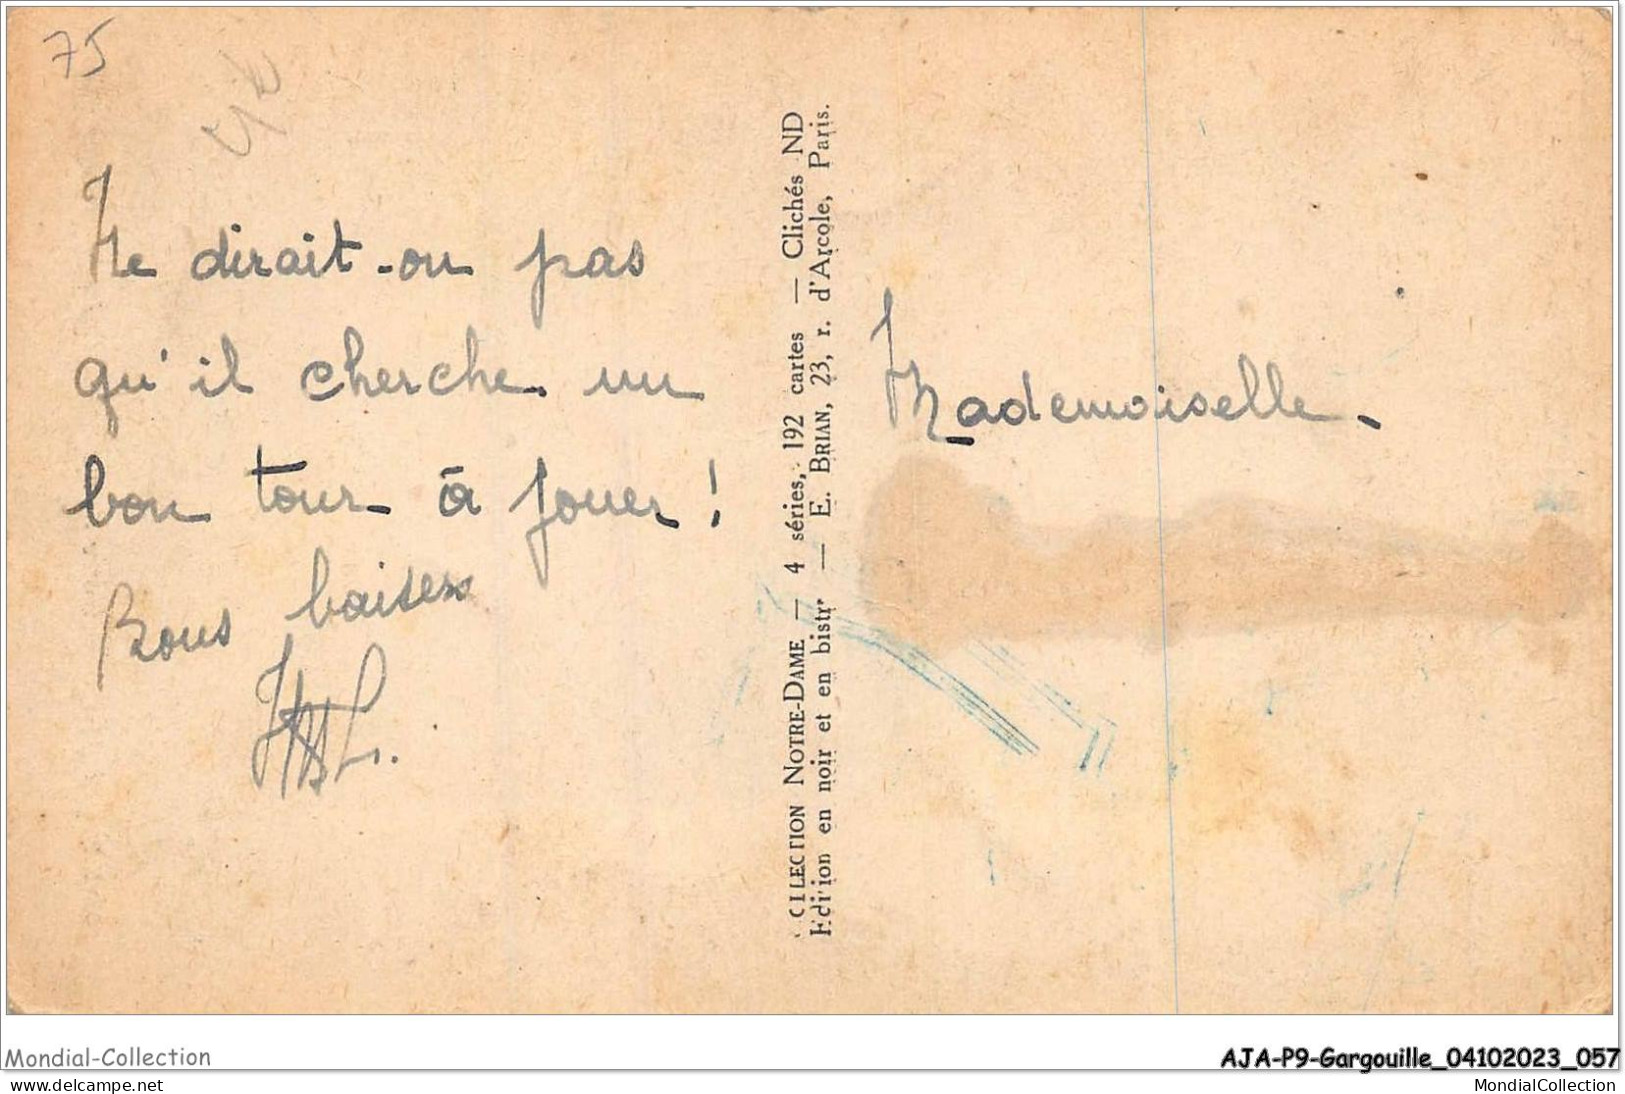 75
Ne dirait-on pas
qu'il cherche un
bon tour à jouer !
Bons baisers
COLLECTION NOTRE-DAME — 4 séries, 192 cartes — Clichés ND
Edition en noir et en bistre — E. BRIAN, 23, r. d'Arcole, Paris.
Mademoiselle
Mondial-Collection
AJA-P9-Gargouille_04102023_057
www.delcampe.net
MondialCollection